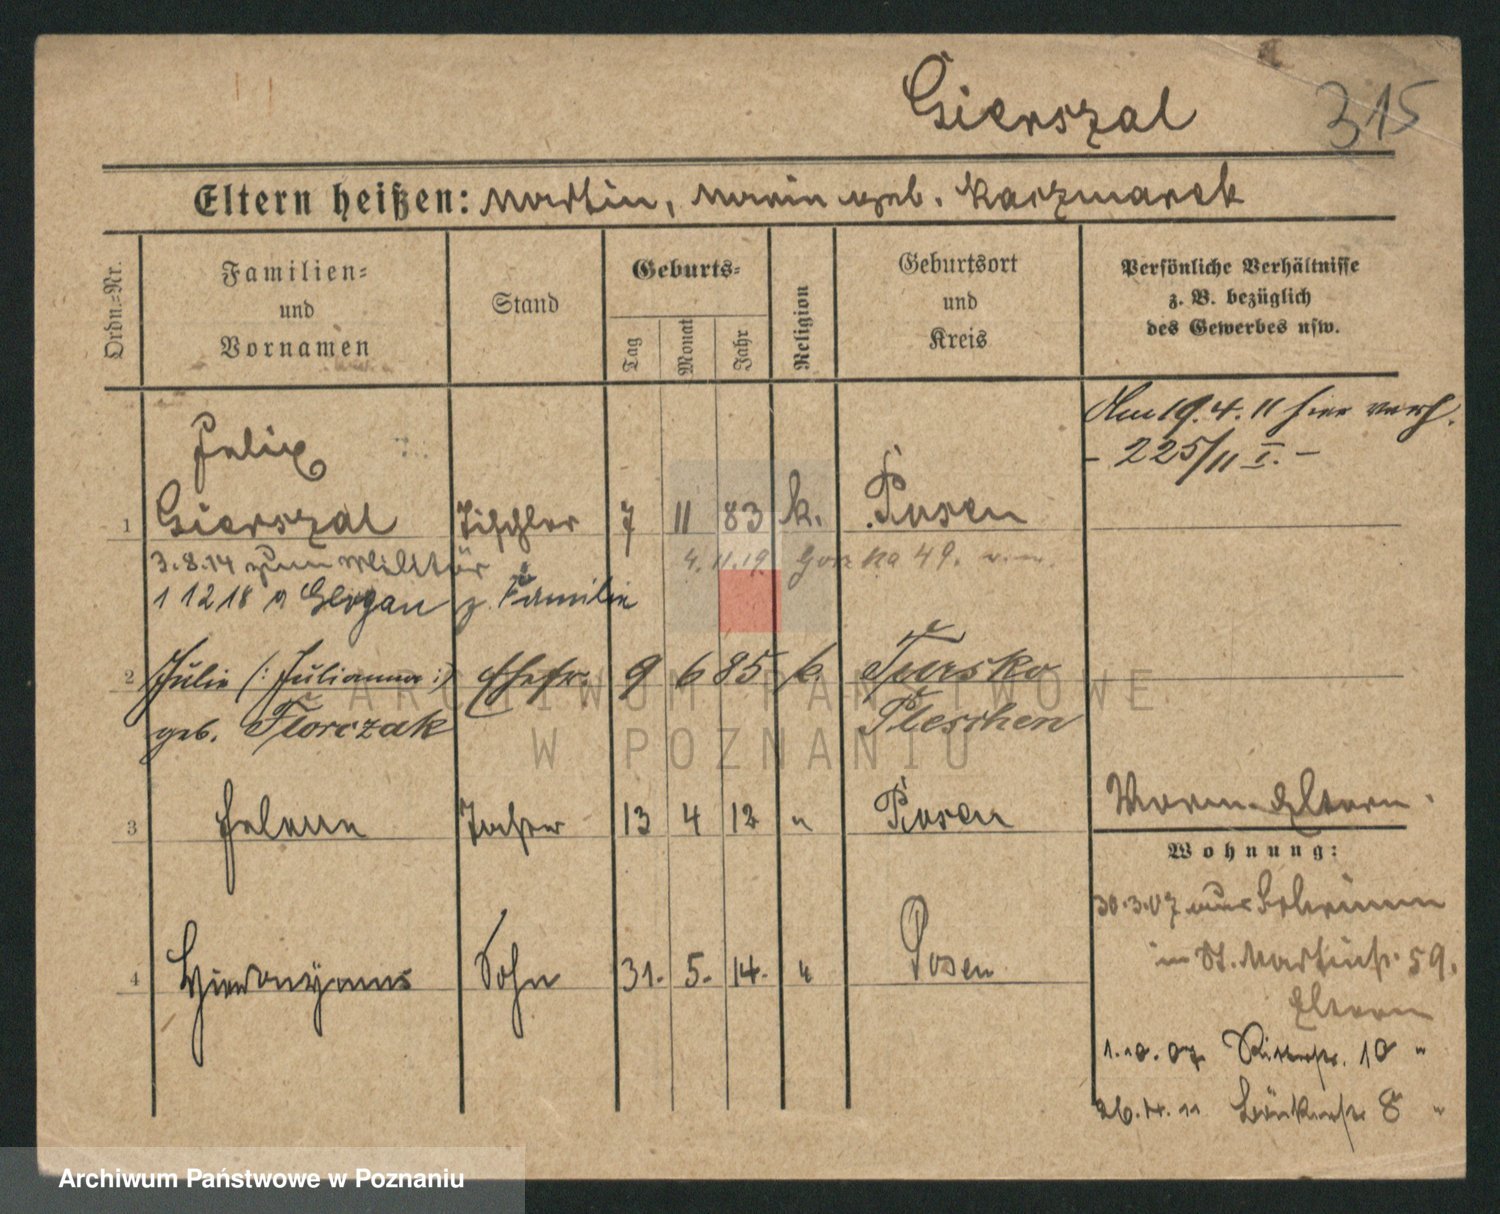 Gierszal 315
Eltern heißen: Martin, Marie geb. Kaczmarek
Ordn.=Nr.
Familien=
und
Vornamen
Stand
Geburts=
Tag
Monat
Jahr
Religion
Geburtsort
und
Kreis
Persönliche Verhältnisse
z. B. bezüglich
des Gewerbes usw.
Am 19.4.11 hier verh.
- 225/11 I. -
Felix
1 Gierszal Tischler 7 11 83 k. Posen
3.8.14 zum Militär 4.11.19 Gorka 49.
1 12 18 v Glogau z. Familie
2 Julie (: Julianna :) Ehefr. 9 6 85 k. Tursko
geb. Florczak Pleschen
3 Helene Tochter 13 4 12 " Posen
Vorm. Eltern.
Wohnung:
30.3.07 aus Schrimm
4 Hieronymus Sohn 31. 5. 14. " Posen
in St. Martinstr. 59.
Eltern
1.10.07 Ritterstr. 10 "
26.4.11 8 "
ARCHIWUM PAŃSTWOWE
W POZNANIU
Archiwum Państwowe w Poznaniu